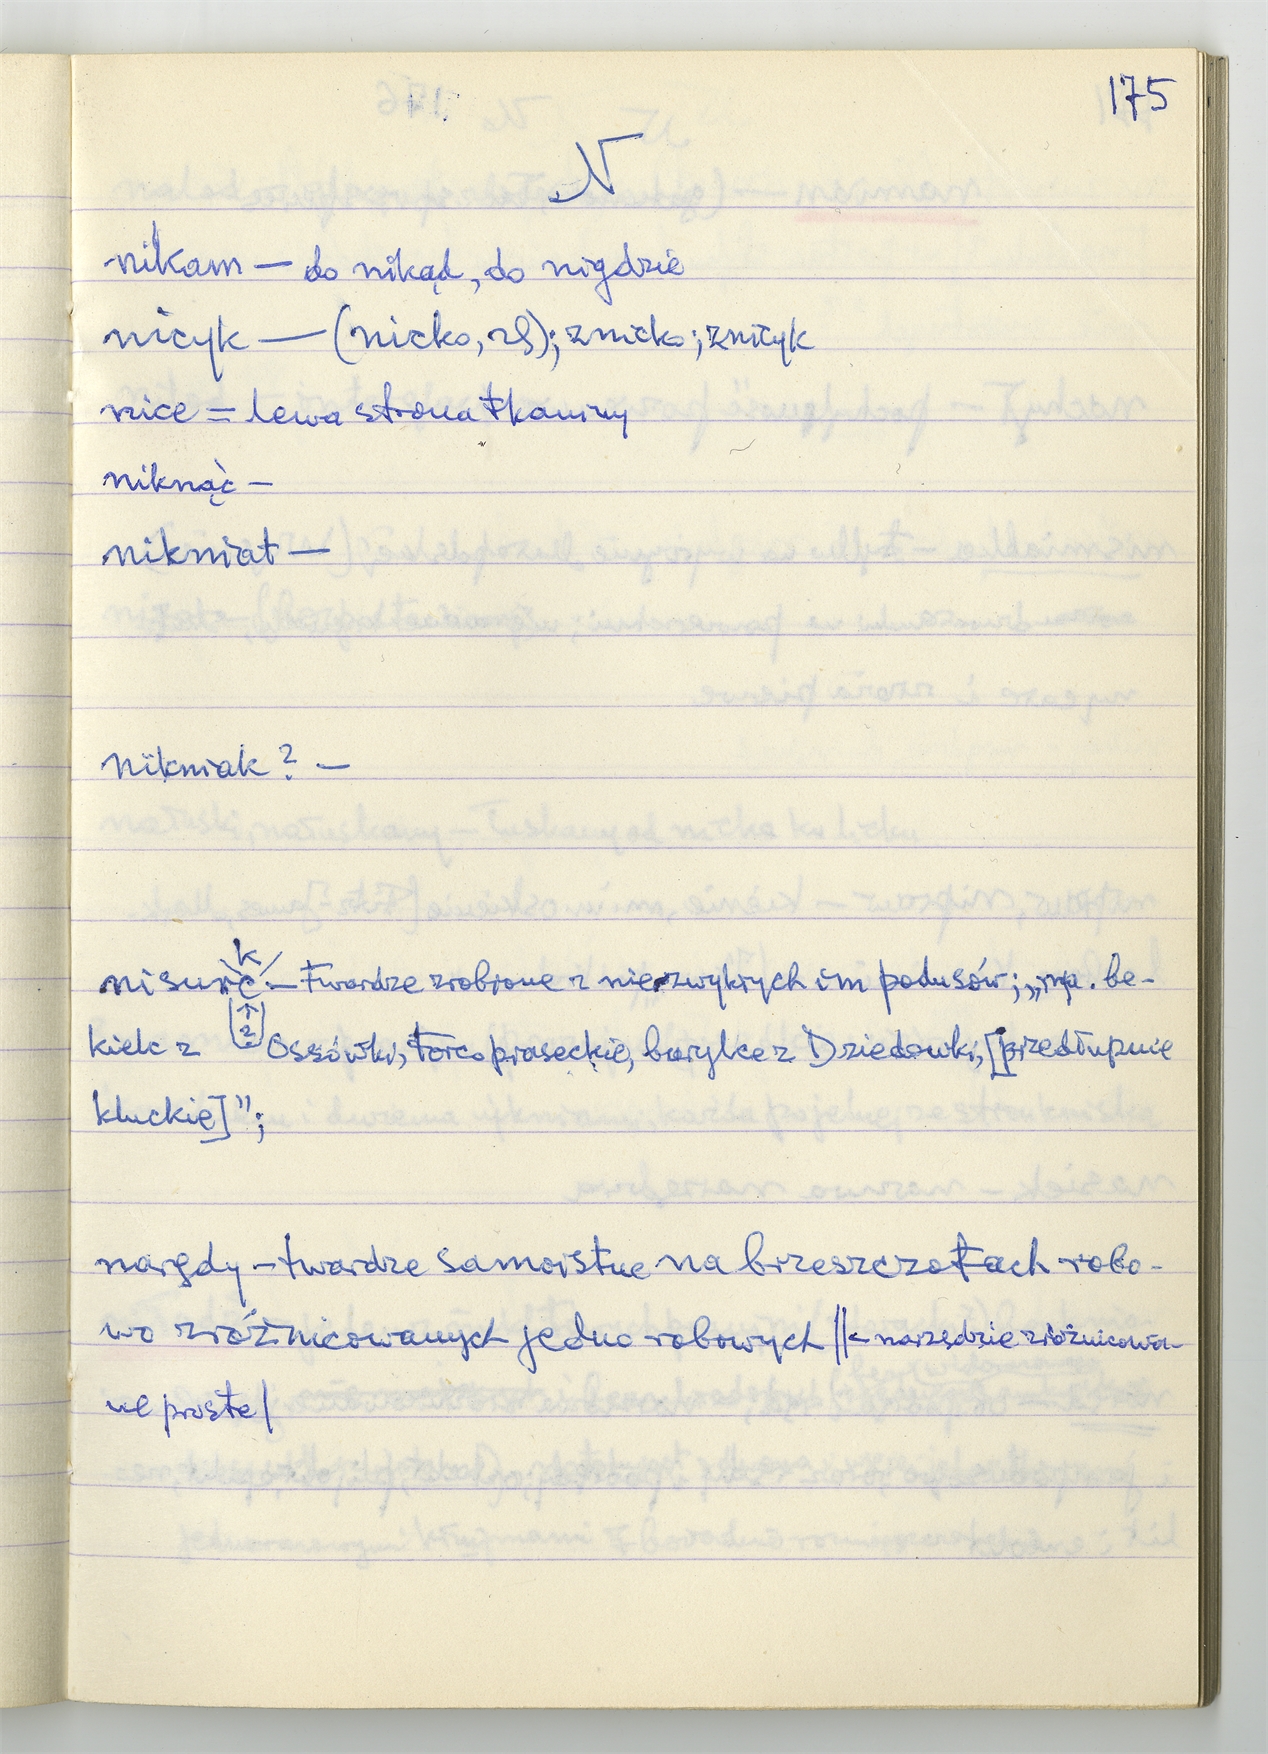 175
N
nikam — do nikąd, do nigdzie
nicyk — (nicko, rs); znicko; znicyk
nice = lewa strona tkaniny
niknąć —
nikniat —
nikniak ? —
k
nisuric — twardze zrobione z niezwykłych im podusów; „np. be-
kielc z Ossówki, torco piaseckie, barylce z Dziedowki, [przedłupnie
kluckie]";
nargdy — twardze samoistne na brzeszczotach robo-
wo zróżnicowanych jedno robowych //< narzędzie zróżnicowa-
ne proste/